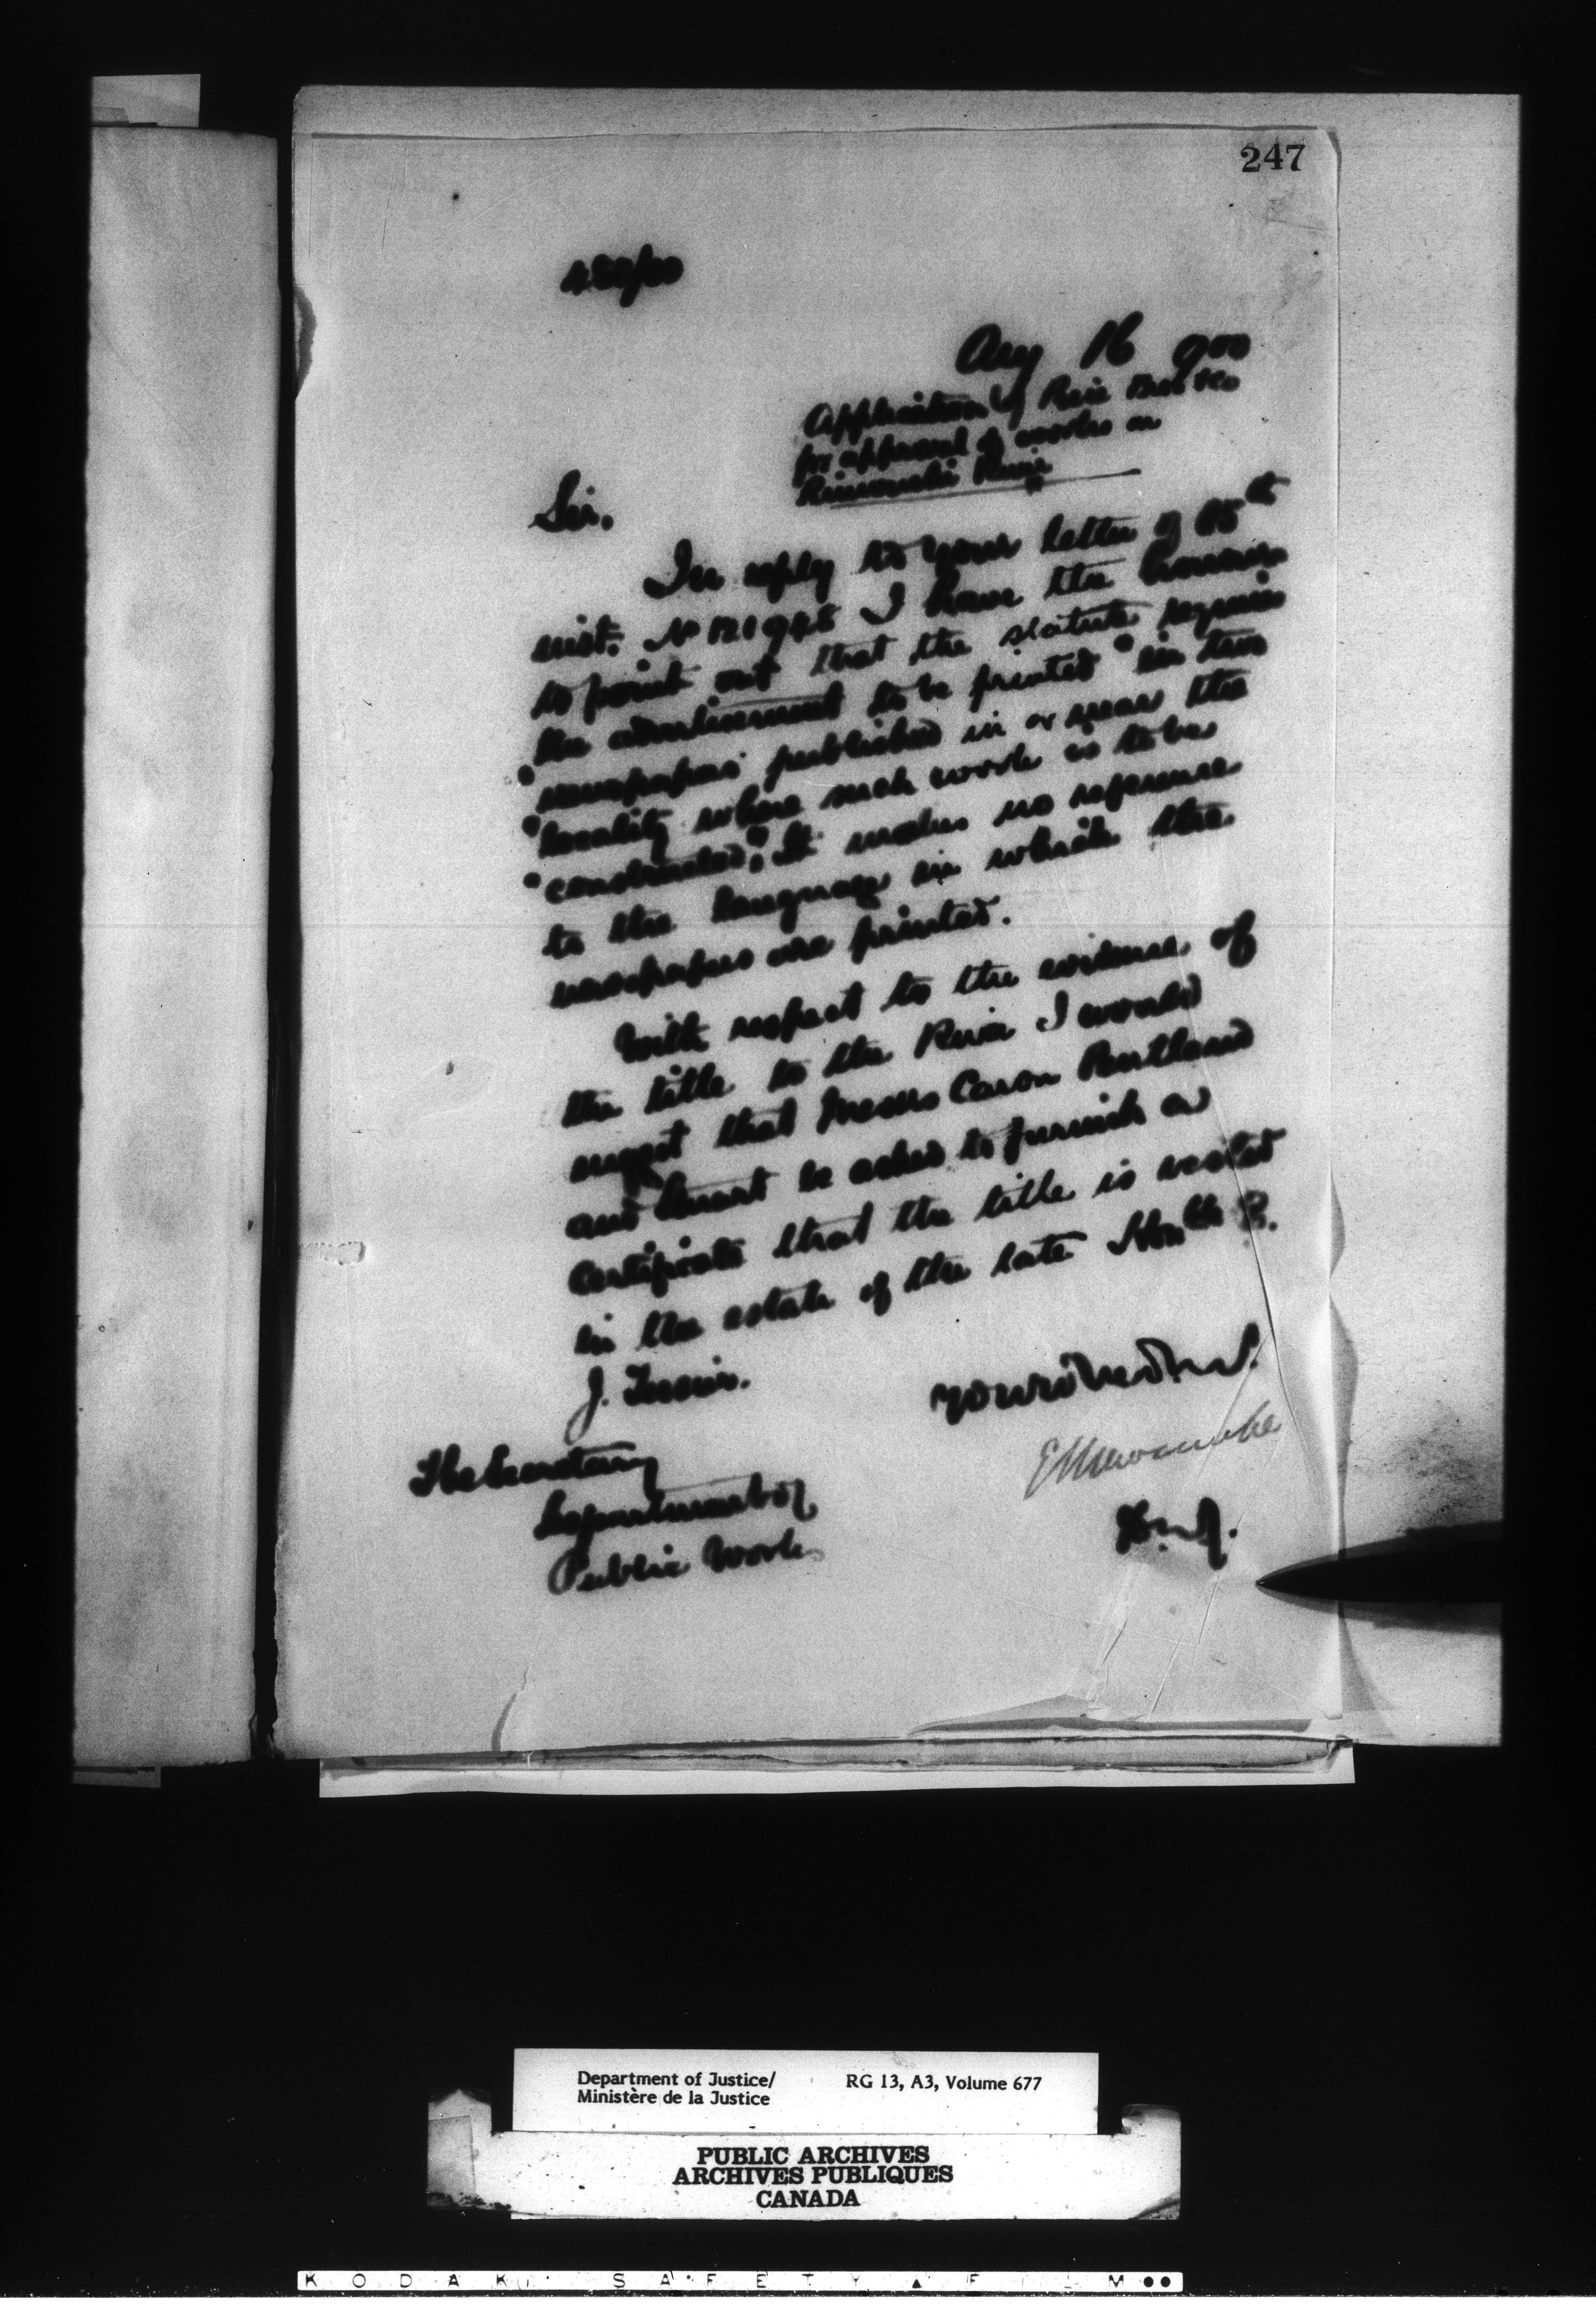 247
Aug 16 900
Application of Price Bros & Co
for approval of works on
Rimouski River
Sir,
In reply to your letter of 15th
inst. No 121948 I have the honour
to point out that the statute requires
the advertisement to be printed "in two
"newspapers published in or near the
"locality where such work is to be
"constructed"; It makes no reference
to the language in which the
newspapers are printed.
With respect to the evidence of
the title to the River I would
suggest that Messrs Caron Pentland
and Stuart be asked to furnish a
certificate that the title is vested
in the estate of the late Honble
J. Tessier.
The Secretary
Department of
Public Works
E L Newcombe
D.M.J.
Department of Justice/
Ministère de la Justice
RG 13, A3, Volume 677
PUBLIC ARCHIVES
ARCHIVES PUBLIQUES
CANADA
KODAK SAFETY FILM